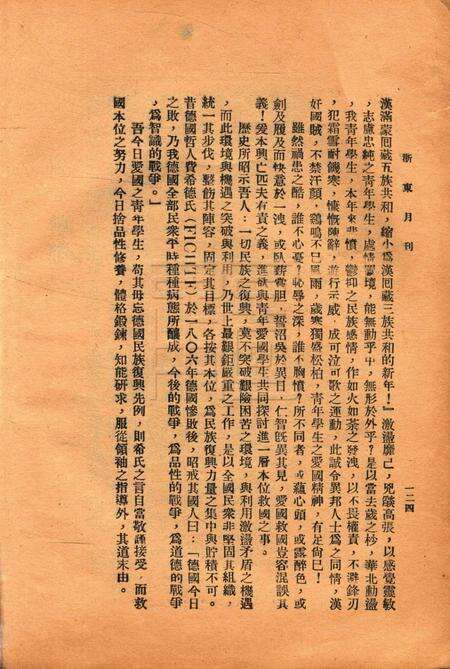 浙東月刊
一二四
漢滿蒙囘藏五族共和，縮小爲漢囘藏三族共和的新年！』激盪靡已，兇燄高張，以感覺靈敏
，志慮忠純之青年學生，處情實境，能無動乎中，無形於外乎？是以當去歲之杪，華北動盪
，我青年學生，本年來悲憤，鬱抑之民族感情，作如火如荼之發洩，以不畏權責，不避鋒刃
，犯霜雪耐饑寒，慷慨陳辭，遊行示威，成可泣可歌之運動，此誠令異邦人士爲之同情，漢
奸國賊，不禁汗顏，鷄鳴不已風雨，歲寒獨盛松柏，青年學生之愛國精神，有足尙已！
雖然禍患之酷，誰不心憂？恥辱之深，誰不胸憤？所不同者，或蘊心頭，或露醉色，或
劍及履及而快意於一洩，或臥薪嘗胆，誓沼吳於異日，仁智旣異其見，愛國救國豈容混誤其
義！爰本興亡匹夫有責之義，進與青年愛國學生共同探討進一層本位救國之事。
歷史所昭示吾人：一切民族之復興，莫不突破艱險困苦之環境，與利用激盪矛盾之機遇
，而此環境與機遇之突破與利用，乃世上最艱鉅嚴重之工作，是以全國民衆非堅固其組織，
統一其步伐，整飭其陣容，固定其目標，各按其本位，爲民族復興力量之集中與貯積不可。
昔德國哲人費希德氏（FICHTE）於一八０六年德國慘敗後，昭戒其國人曰：「德國今日
之敗，乃我德國全部民衆平時種種病態所釀成，今後的戰爭，爲品性的戰爭，爲道德的戰爭
，爲智識的戰爭。」
吾今日愛國之青年學生，苟其毋忘德國民族復興先例，則希氏之言自當敬謹接受，而救
國本位之努力，今日捨品性修養，體格鍛鍊，知能研求，服從領袖之指導外，其道末由。